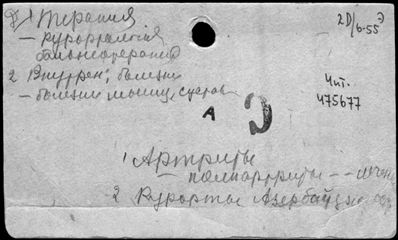 1 Терапия
2D/6-55
– курортология
бальнеотерапия
2 Внутрен; болезни
– болезни мышц, сустав
Чит.
475677
А
Э
1 Артриты
– полиартриты –
2 Курорты Азербайдж